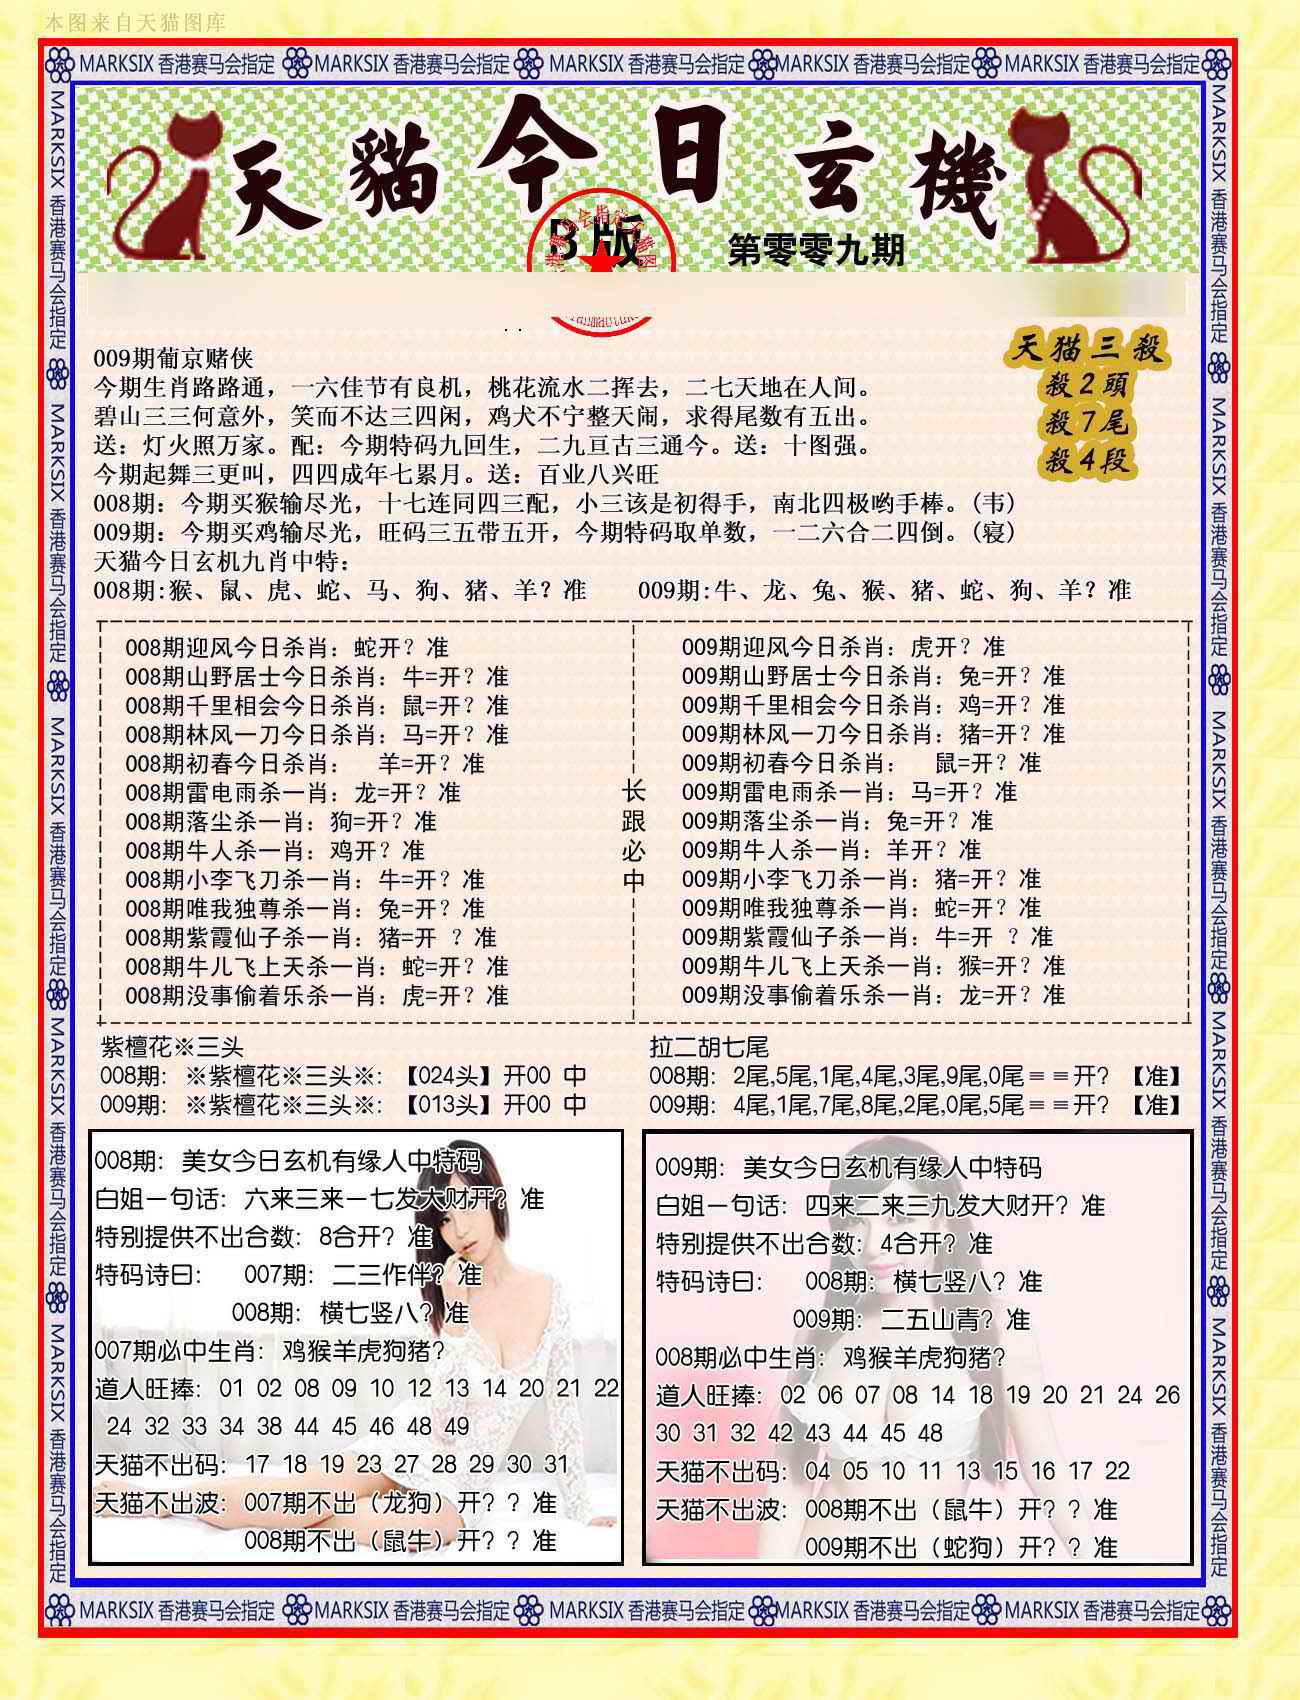 本图来自天猫图库
MARKSIX 香港赛马会指定 MARKSIX 香港赛马会指定 MARKSIX 香港赛马会指定 MARKSIX 香港赛马会指定 MARKSIX 香港赛马会指定
天貓今日玄機
B版
第零零九期
天猫三殺
殺2頭
殺7尾
殺4段
009期葡京赌侠
今期生肖路路通，一六佳节有良机，桃花流水二挥去，二七天地在人间。
碧山三三何意外，笑而不达三四闲，鸡犬不宁整天闹，求得尾数有五出。
送：灯火照万家。配：今期特码九回生，二九亘古三通今。送：十图强。
今期起舞三更叫，四四成年七累月。送：百业八兴旺
008期：今期买猴输尽光，十七连同四三配，小三该是初得手，南北四极哟手棒。(韦)
009期：今期买鸡输尽光，旺码三五带五开，今期特码取单数，一二六合二四倒。(寝)
天猫今日玄机九肖中特：
008期:猴、鼠、虎、蛇、马、狗、猪、羊？准 009期:牛、龙、兔、猴、猪、蛇、狗、羊？准
008期迎风今日杀肖：蛇开？准
008期山野居士今日杀肖：牛=开？准
008期千里相会今日杀肖：鼠=开？准
008期林风一刀今日杀肖：马=开？准
008期初春今日杀肖： 羊=开？准
008期雷电雨杀一肖：龙=开？准
008期落尘杀一肖：狗=开？准
008期牛人杀一肖：鸡开？准
008期小李飞刀杀一肖：牛=开？准
008期唯我独尊杀一肖：兔=开？准
008期紫霞仙子杀一肖：猪=开 ？准
008期牛儿飞上天杀一肖：蛇=开？准
008期没事偷着乐杀一肖：虎=开？准
长
跟
必
中
009期迎风今日杀肖：虎开？准
009期山野居士今日杀肖：兔=开？准
009期千里相会今日杀肖：鸡=开？准
009期林风一刀今日杀肖：猪=开？准
009期初春今日杀肖： 鼠=开？准
009期雷电雨杀一肖：马=开？准
009期落尘杀一肖：兔=开？准
009期牛人杀一肖：羊开？准
009期小李飞刀杀一肖：猪=开？准
009期唯我独尊杀一肖：蛇=开？准
009期紫霞仙子杀一肖：牛=开 ？准
009期牛儿飞上天杀一肖：猴=开？准
009期没事偷着乐杀一肖：龙=开？准
紫檀花※三头
008期：※紫檀花※三头※：【024头】开00 中
009期：※紫檀花※三头※：【013头】开00 中
拉二胡七尾
008期：2尾,5尾,1尾,4尾,3尾,9尾,0尾＝＝开？【准】
009期：4尾,1尾,7尾,8尾,2尾,0尾,5尾＝＝开？【准】
008期：美女今日玄机有缘人中特码
白姐一句话：六来三来一七发大财开？准
特别提供不出合数：8合开？准
特码诗曰： 007期：二三作伴？准
008期：横七竖八？准
007期必中生肖：鸡猴羊虎狗猪？
道人旺捧：01 02 08 09 10 12 13 14 20 21 22
24 32 33 34 38 44 45 46 48 49
天猫不出码：17 18 19 23 27 28 29 30 31
天猫不出波：007期不出（龙狗）开？？准
008期不出（鼠牛）开？？准
009期：美女今日玄机有缘人中特码
白姐一句话：四来二来三九发大财开？准
特别提供不出合数：4合开？准
特码诗曰： 008期：横七竖八？准
009期：二五山青？准
008期必中生肖：鸡猴羊虎狗猪？
道人旺捧：02 06 07 08 14 18 19 20 21 24 26
30 31 32 42 43 44 45 48
天猫不出码：04 05 10 11 13 15 16 17 22
天猫不出波：008期不出（鼠牛）开？？准
009期不出（蛇狗）开？？准
MARKSIX 香港赛马会指定 MARKSIX 香港赛马会指定 MARKSIX 香港赛马会指定 MARKSIX 香港赛马会指定 MARKSIX 香港赛马会指定
MARKSIX 香港赛马会指定 MARKSIX 香港赛马会指定 MARKSIX 香港赛马会指定 MARKSIX 香港赛马会指定 MARKSIX 香港赛马会指定
MARKSIX 香港赛马会指定 MARKSIX 香港赛马会指定 MARKSIX 香港赛马会指定 MARKSIX 香港赛马会指定 MARKSIX 香港赛马会指定